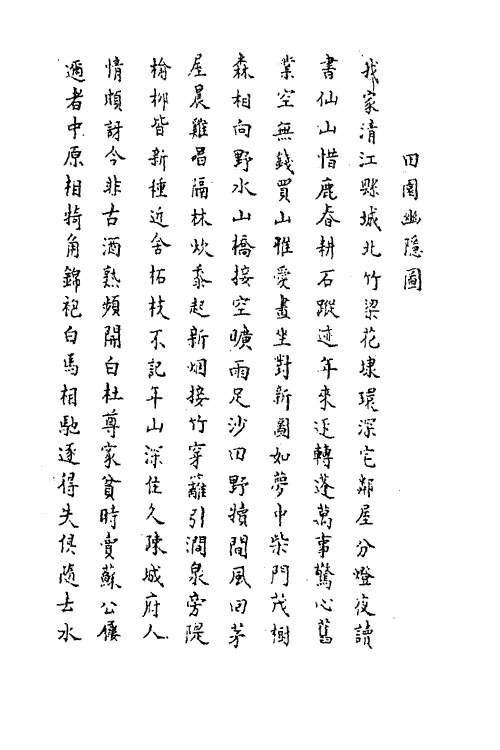 田園幽隱圖
我家清江縣城北竹梁花埭環深宅鄰屋分燈夜讀
書仙山惜鹿春耕石蹤迹年來逐轉蓬萬事驚心舊
業空無錢買山雅愛畫坐對新圖如夢中柴門茂樹
森相向野水山橋接空曠雨足沙田野犢閒風回茅
屋晨雞唱隔林炊黍起新烟接竹穿籬引澗泉旁隄
榆柳皆新種近舍柘枝不記年山深住久陳城府人
情頗訝今非古酒熟頻開白社尊家貧時賣蘇公
邇者中原相犄角錦袍白馬相馳逐得失俱隨去水